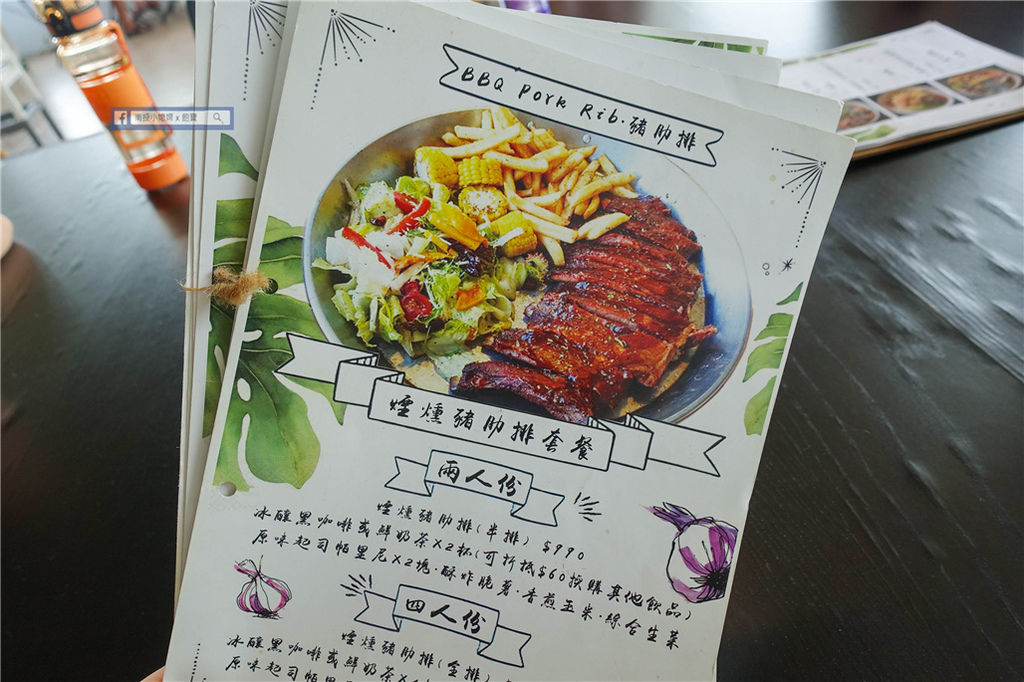 南投小姐婦 x 飽寶
BBQ Pork Rib·豬肋排
煙燻豬肋排套餐
兩人份
煙燻豬肋排(半排) $990
冰釀黑咖啡或鮮奶茶X2杯(可折抵$60換購其他飲品)
原味起司帕里尼X2塊·酥炸脆薯·香煎玉米·綜合生菜
四人份
煙燻豬肋排(全排)
冰釀黑咖啡或鮮奶茶X
原味起司帕里尼X